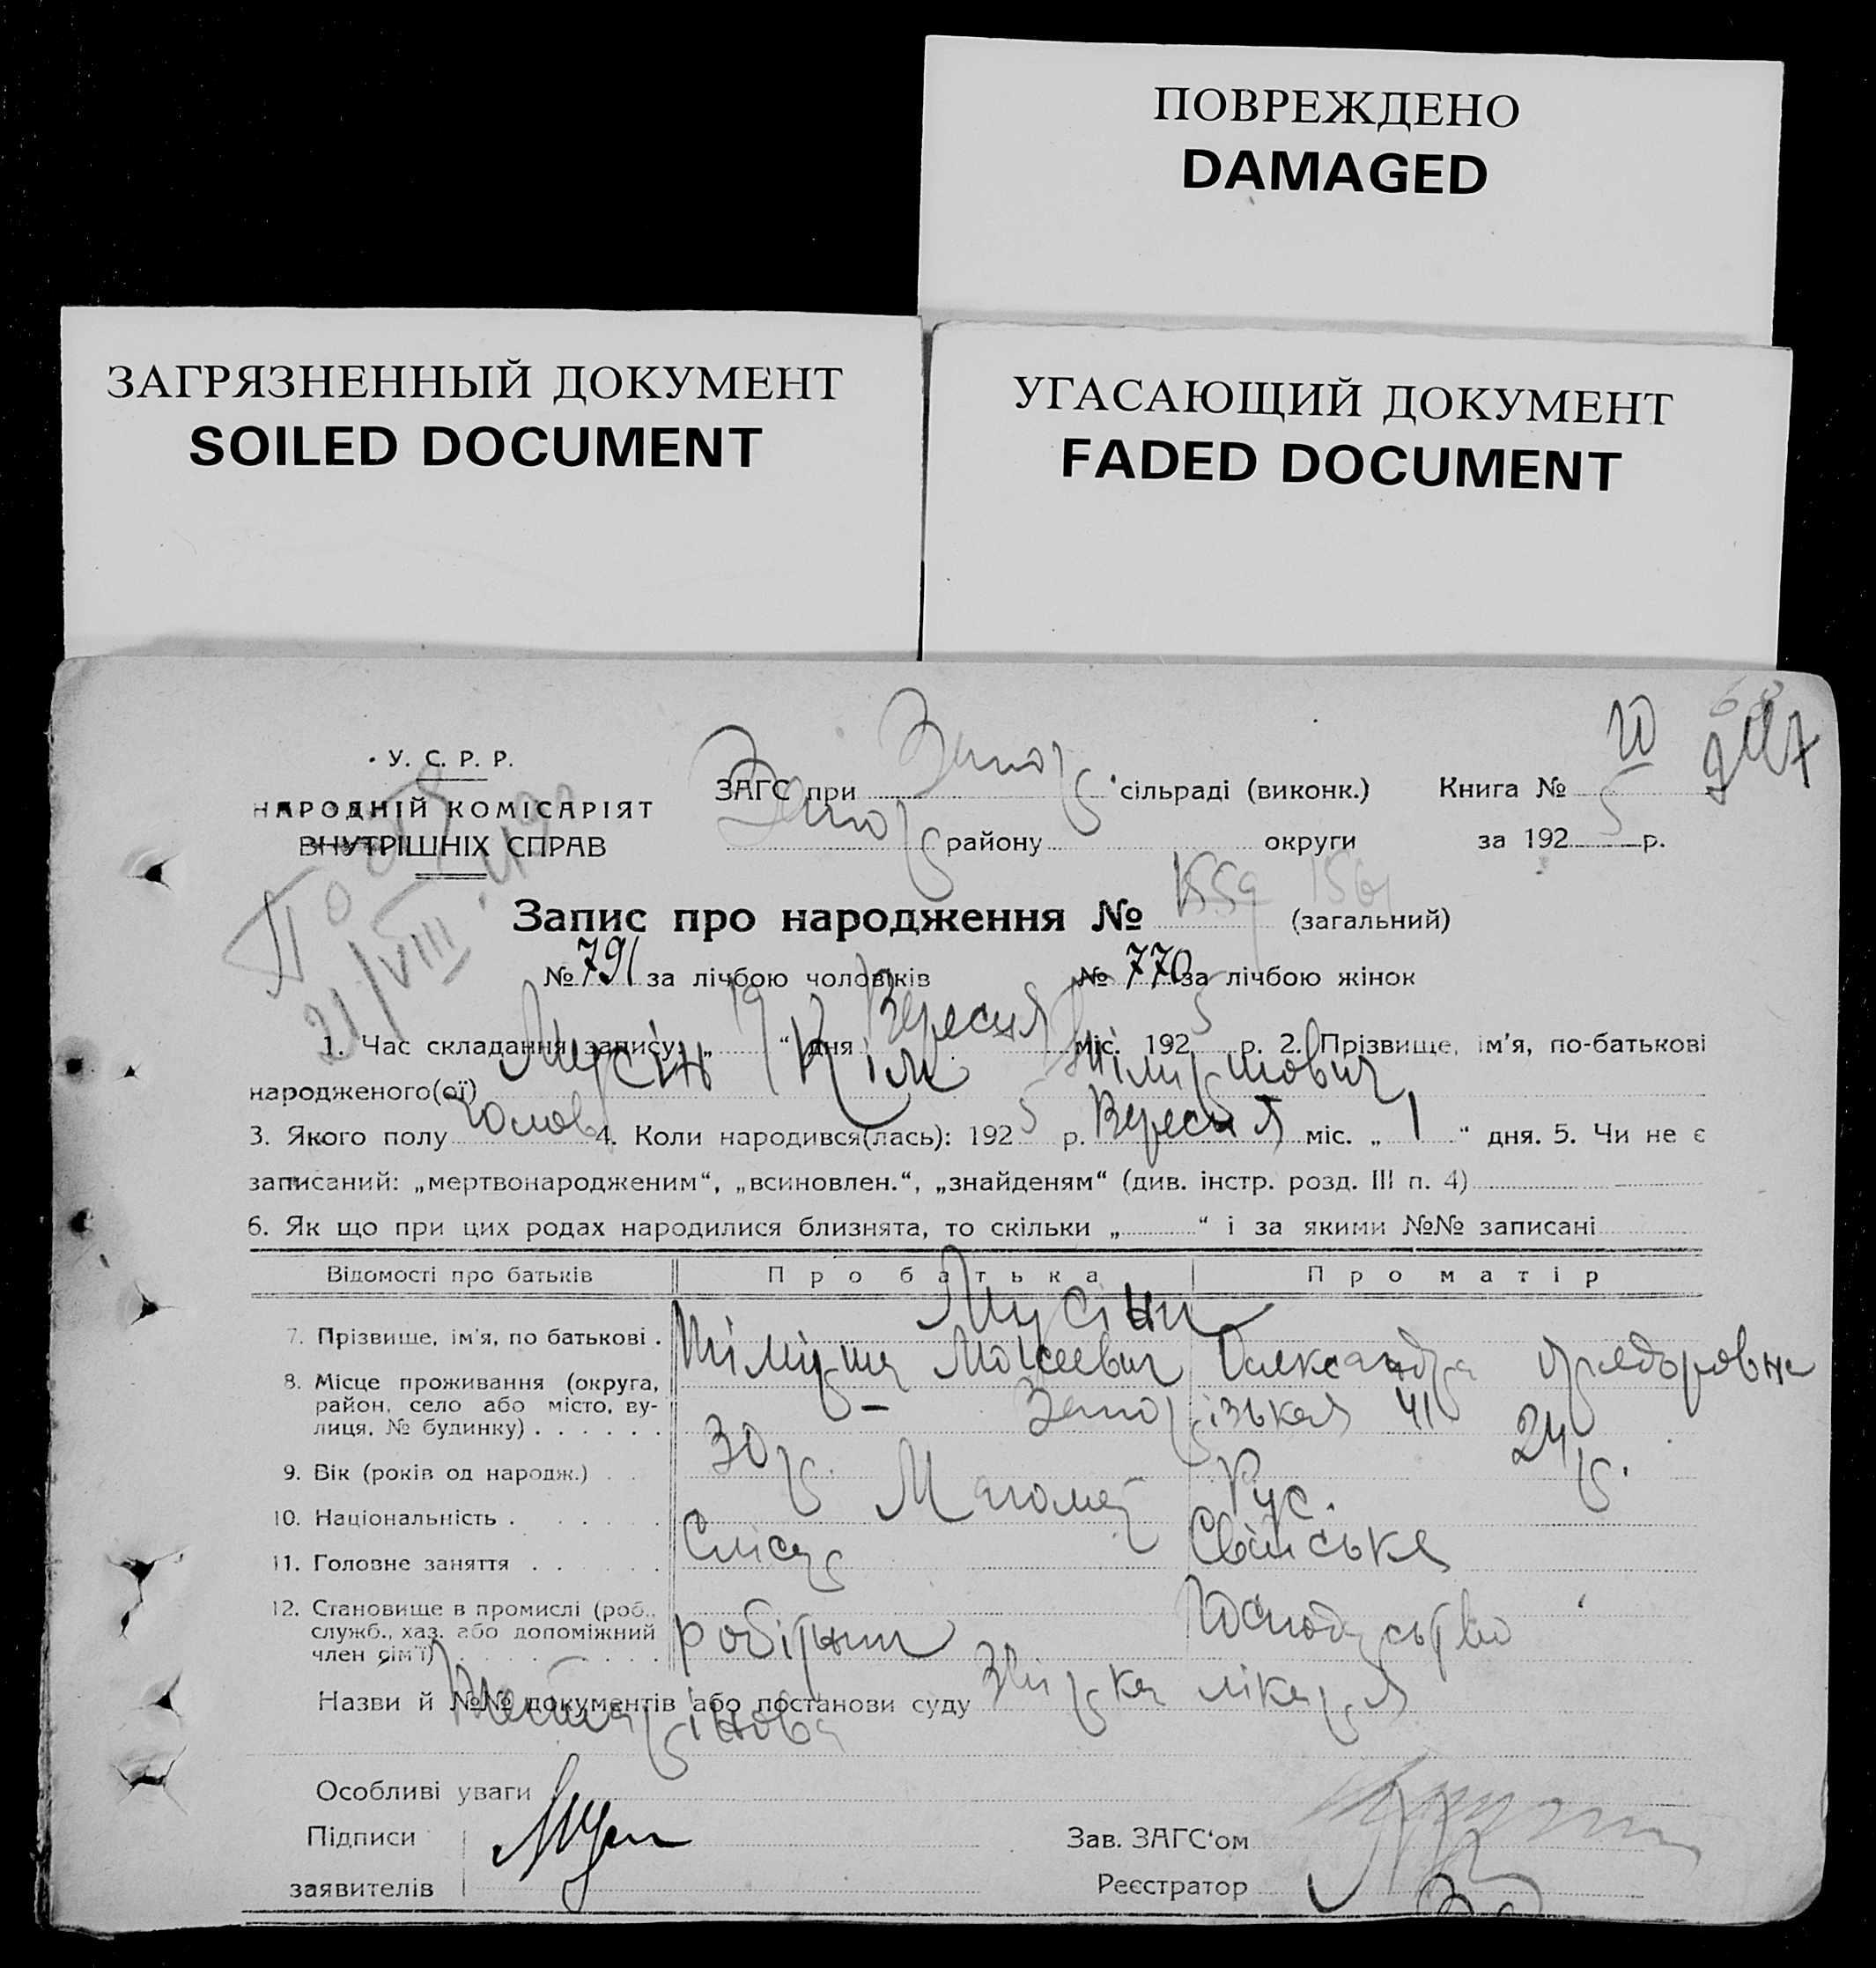 ПОВРЕЖДЕНО
DAMAGED
ЗАГРЯЗНЕННЫЙ ДОКУМЕНТ
SOILED DOCUMENT
УГАСАЮЩИЙ ДОКУМЕНТ
FADED DOCUMENT
У. С. Р. Р.
НАРОДНІЙ КОМІСАРІЯТ
ВНУТРІШНІХ СПРАВ
21/VIII
ЗАГС при Запор сільраді (виконк.) Книга №
Запор району округи за 1925 р.
Запис про народження № 1559 (загальний)
№ 791 за лічбою чоловіків № 770 за лічбою жінок
1. Час складання запису „19“ дня Вересня міс. 1925 р. 2. Прізвище, ім'я, по-батькові
народженого(ої) Мусін Кім
3. Якого полу Чолов 4. Коли народився(лась): 1925 р. Вересня міс. „1“ дня. 5. Чи не є
записаний: „мертвонародженим“, „всиновлен.“, „знайденям“ (див. інстр. розд. III п. 4)
6. Як що при цих родах народилися близнята, то скільки „ “ і за якими №№ записані
Відомості про батьків Про батька Про матір
Мусіни
7. Прізвише, ім'я, по батькові . Мойсеевич Олександра Фредоровна
8. Місце проживання (округа, район, село або місто, вулиця, № будинку) . . . . . . – Запорізька 41
9. Вік (років од народж.) . . 30 р. 24 р.
10. Національність . Магомет Рус.
11. Головне заняття . . . . . Слісар Свійське
12. Становище в промислі (роб., служб., хаз. або допоміжний член сім'ї) робітник Господарство
Назви й №№ документів або постанови суду Звірка лікаря
Особливі уваги
Підписи Зав. ЗАГС'ом
заявителів Реєстратор